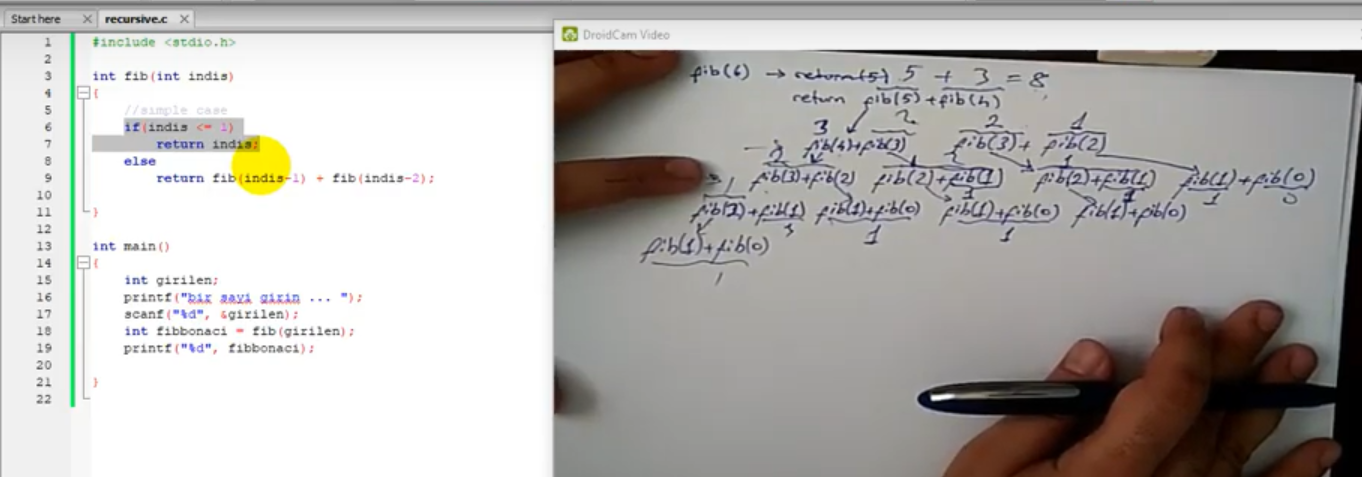 Start here
recursive.c
1 #include <stdio.h>
2
3 int fib(int indis)
4 {
5 //simple case
6 if(indis <= 1)
7 return indis;
8 else
9 return fib(indis-1) + fib(indis-2);
10
11 }
12
13 int main()
14 {
15 int girilen;
16 printf("bir sayi girin ... ");
17 scanf("%d", &girilen);
18 int fibbonaci = fib(girilen);
19 printf("%d", fibbonaci);
20
21 }
22
DroidCam Video
fib(6) → return(5) 5 + 3 = 8
return fib(5)+fib(4)
3 2 2 1
fib(4)+fib(3) fib(3)+ fib(2)
fib(3)+fib(2) fib(2)+fib(1) fib(2)+fib(1) fib(1)+fib(0)
fib(2)+fib(1) fib(1)+fib(0) fib(1)+fib(0) fib(1)+fib(0)
1 1
fib(1)+fib(0)
1